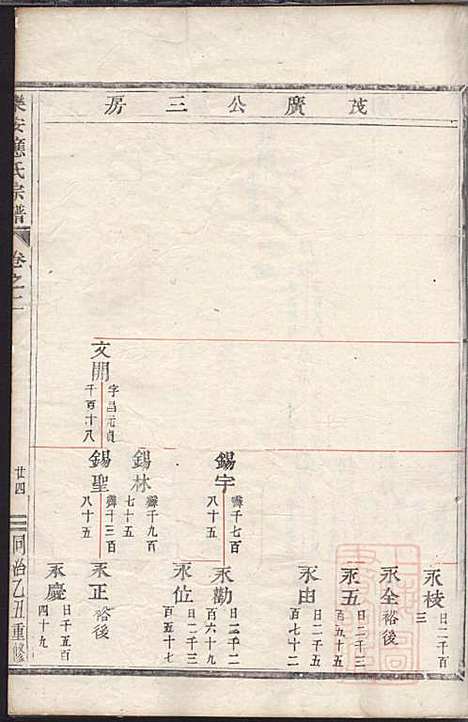 茂廣公三房
永棱
日二千百
三
永全
裕後
永五
日二千三
百五十五
永由
日二千五
百七十二
錫宇
霽千七百
八十五
永勸
日二千二
百六十九
永位
日千三
百五十七
錫林
霽千九百
七十五
文開
字昌元貞
千百十八
錫聖
霽千三百
八十五
永正
裕後
永慶
日千五百
四十九
樂安應氏宗譜
卷之二
廿四
同治乙丑重修